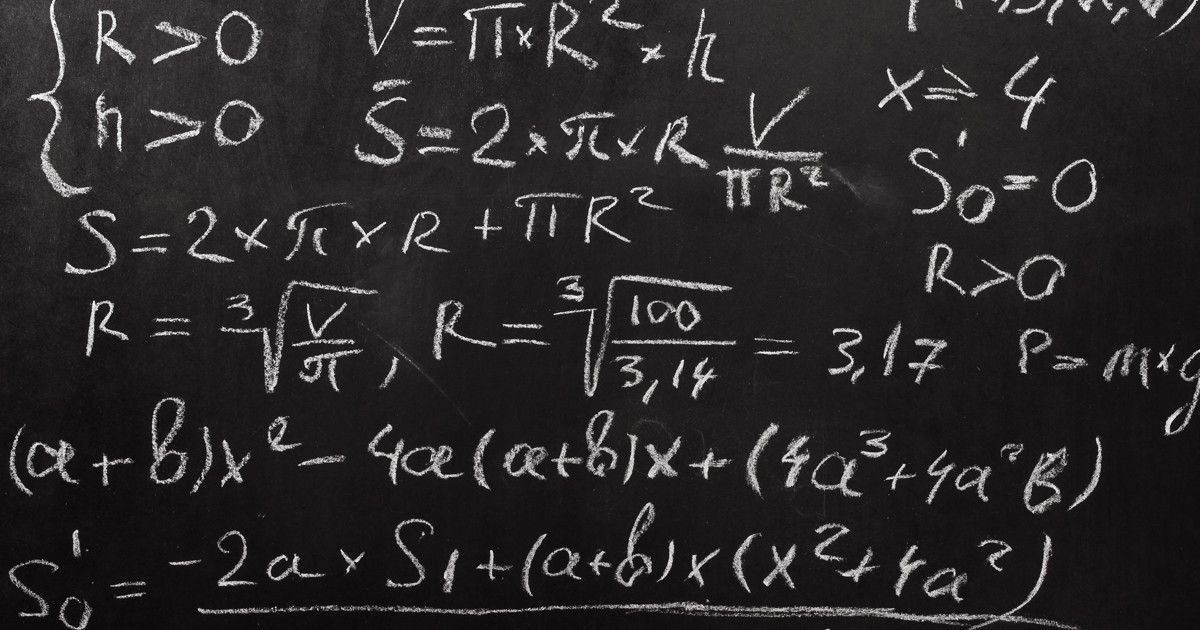 { R > 0 V = π × R² × h
h > 0 S̄ = 2 × π × R V/πR² x => 4
S = 2 × π × R + πR² S₀' = 0
R > 0
R = ³√(V/π) , R = ³√(100/3,14) = 3,17 P = m × g
(a + b)x² - 4a(a+b)x + (4a³ + 4a²b)
S₀' = -2a × S₁ + (a+b) × (x² + 4a²)